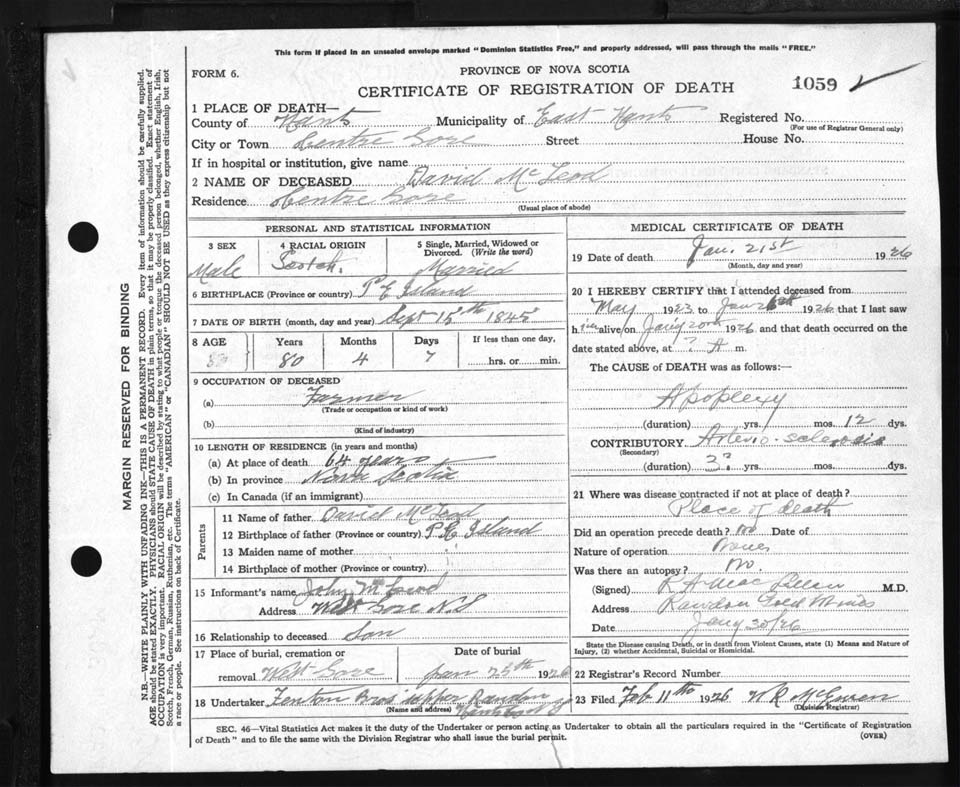 This form if placed in an unsealed envelope marked "Dominion Statistics Free," and properly addressed, will pass through the mails "FREE."
FORM 6.
PROVINCE OF NOVA SCOTIA
CERTIFICATE OF REGISTRATION OF DEATH
1059 ✓
1 PLACE OF DEATH—
County of Hants Municipality of East Hants Registered No.
(For use of Registrar General only)
City or Town Centre Gore Street House No.
If in hospital or institution, give name
2 NAME OF DECEASED David McLeod
Residence Centre Gore
(Usual place of abode)
PERSONAL AND STATISTICAL INFORMATION
3 SEX 4 RACIAL ORIGIN 5 Single, Married, Widowed or Divorced. (Write the word)
Male Scotch. Married
6 BIRTHPLACE (Province or country) P E Island
7 DATE OF BIRTH (month, day and year) Sept 15th 1845
8 AGE Years Months Days If less than one day,
80 4 7 hrs. or min.
9 OCCUPATION OF DECEASED
(a) Farmer
(Trade or occupation or kind of work)
(b)
(Kind of industry)
10 LENGTH OF RESIDENCE (in years and months)
(a) At place of death 64 years
(b) In province Nova Scotia
(c) In Canada (if an immigrant)
Parents
11 Name of father David McLeod
12 Birthplace of father (Province or country) P E Island
13 Maiden name of mother
14 Birthplace of mother (Province or country)
15 Informant's name John McLeod
Address West Gore N.S
16 Relationship to deceased Son
17 Place of burial, cremation or removal Date of burial
West Gore Jan 25th 1926
18 Undertaker Fenton Bros Upper Rawdon
(Name and address) Hants Co
MEDICAL CERTIFICATE OF DEATH
19 Date of death Jan. 21st 1926
(Month, day and year)
20 I HEREBY CERTIFY that I attended deceased from
May 1923 to Jan 1926 that I last saw
him alive on Jany 20th 1926 and that death occurred on the
date stated above, at ? A m.
The CAUSE of DEATH was as follows:—
Apoplexy
(duration) yrs. mos. 12 dys.
CONTRIBUTORY Arterio-sclerosis
(Secondary)
(duration) 3? yrs. mos. dys.
21 Where was disease contracted if not at place of death?
Place of death
Did an operation precede death? No Date of
Nature of operation
Was there an autopsy? No.
(Signed) M.D.
Address Rawdon Gold Mines
Date Jany 30/26
State the Disease causing Death, or in death from Violent Causes, state (1) Means and Nature of
Injury, (2) whether Accidental, Suicidal or Homicidal.
22 Registrar's Record Number
23 Filed Feb 11th 1926 W R McEwen
(Division Registrar)
SEC. 46—Vital Statistics Act makes it the duty of the Undertaker or person acting as Undertaker to obtain all the particulars required in the "Certificate of Registration
of Death" and to file the same with the Division Registrar who shall issue the burial permit.
(OVER)
MARGIN RESERVED FOR BINDING
N.B.—WRITE PLAINLY WITH UNFADING INK—THIS IS A PERMANENT RECORD. Every item of information should be carefully supplied.
AGE should be stated EXACTLY. PHYSICIANS should STATE CAUSE OF DEATH in plain terms, so that it may be properly classified. Exact statement of
OCCUPATION is very important. RACIAL ORIGIN will be described by stating to what people or tongue the deceased person belonged, whether English, Irish,
Scotch, French, German, Russian, Ruthenian, etc. The terms "AMERICAN" or "CANADIAN" SHOULD NOT BE USED as they express citizenship but not
a race or people. See instructions on back of Certificate.